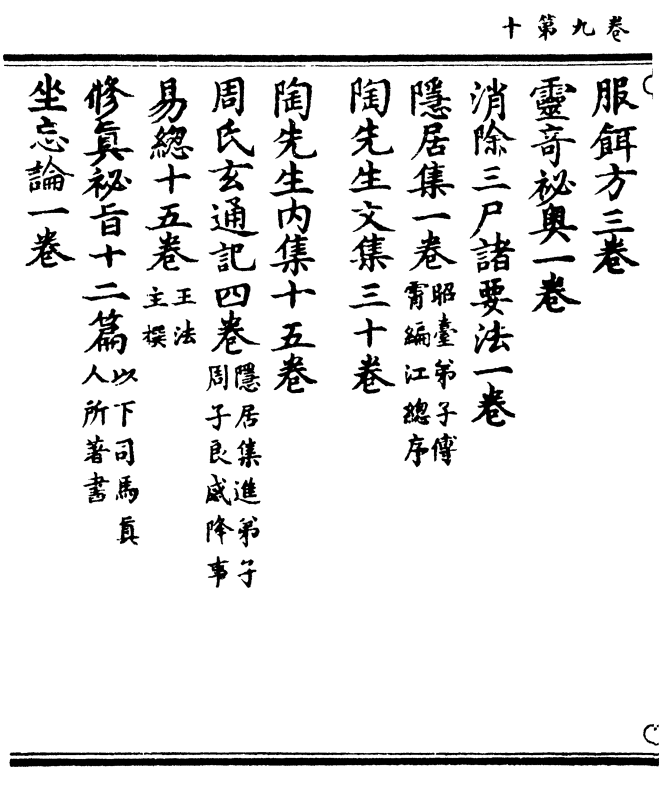 卷九第十
服餌方三卷
靈奇祕奧一卷
消除三尸諸要法一卷
隱居集一卷昭臺弟子傅
霄編江總序
陶先生文集三十卷
陶先生內集十五卷
周氏玄通記四卷隱居集進弟子
周子良感降事
易總十五卷王法
主撰
修眞祕旨十二篇以下司馬眞
人所著書
坐忘論一卷